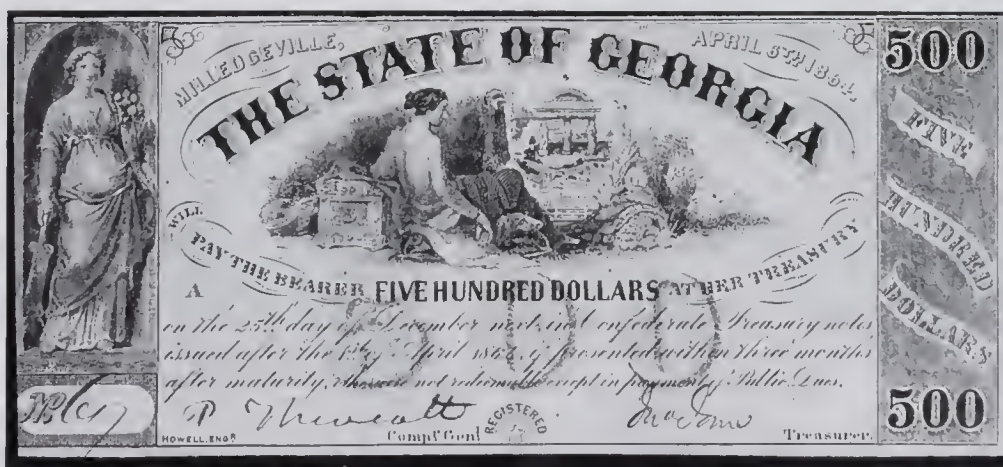 MILLEDGEVILLE, APRIL 6TH, 1864.
THE STATE OF GEORGIA
WILL
PAY THE BEARER FIVE HUNDRED DOLLARS AT HER TREASURY
A
500
on the 25th day of December next, in Confederate Treasury notes
issued after the 1st of April 1864, if presented within three months
after maturity, otherwise not redeemable except in payment of Public Dues.
No
HOWELL, ENGR.
Compt. Genl.
REGISTERED
Treasurer.
500
FIVE
HUNDRED
DOLLARS
500